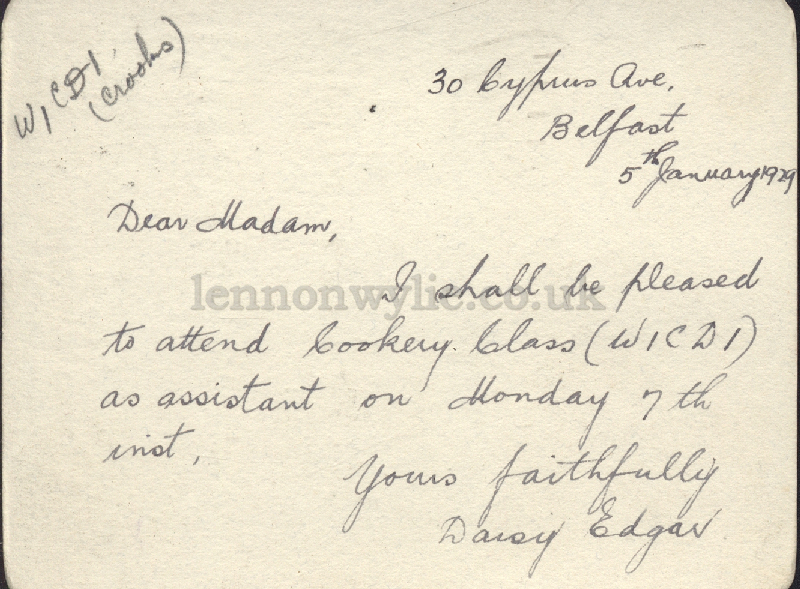 W1CD1
(Crooks)
30 Cyprus Ave.
Belfast
5th January 1929
Dear Madam,
I shall be pleased
lennonwylie.co.uk
to attend Cookery Class (W1CD1)
as assistant on Monday 7th
inst,
Yours faithfully
Daisy Edgar